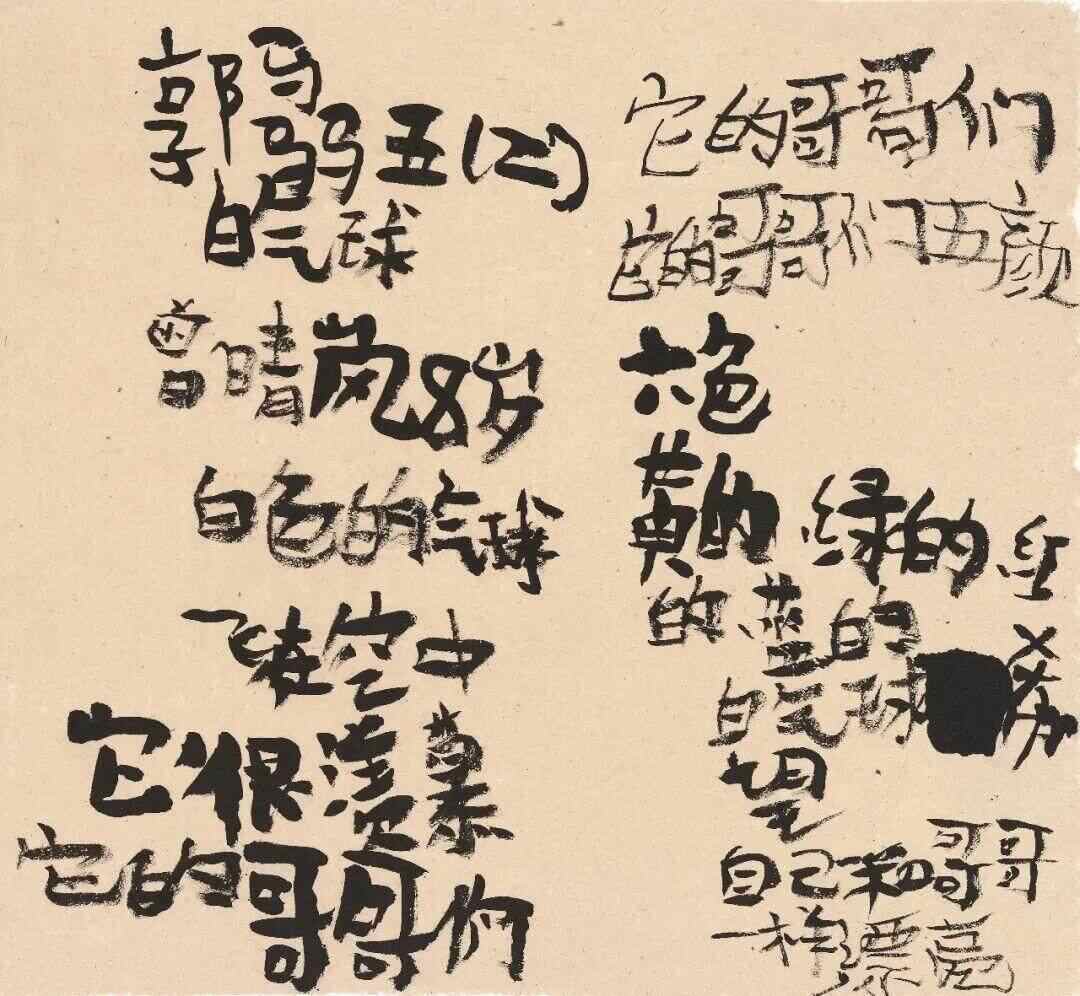 郭骉五(2)
白气球
曾晴岚8岁
白色的气球
飞在空中
它很羡慕
它的哥哥们
它的哥哥们
它的哥哥们五颜
六色
黄的绿的红
的蓝的
白气球希
望
自己和哥哥
一样漂亮